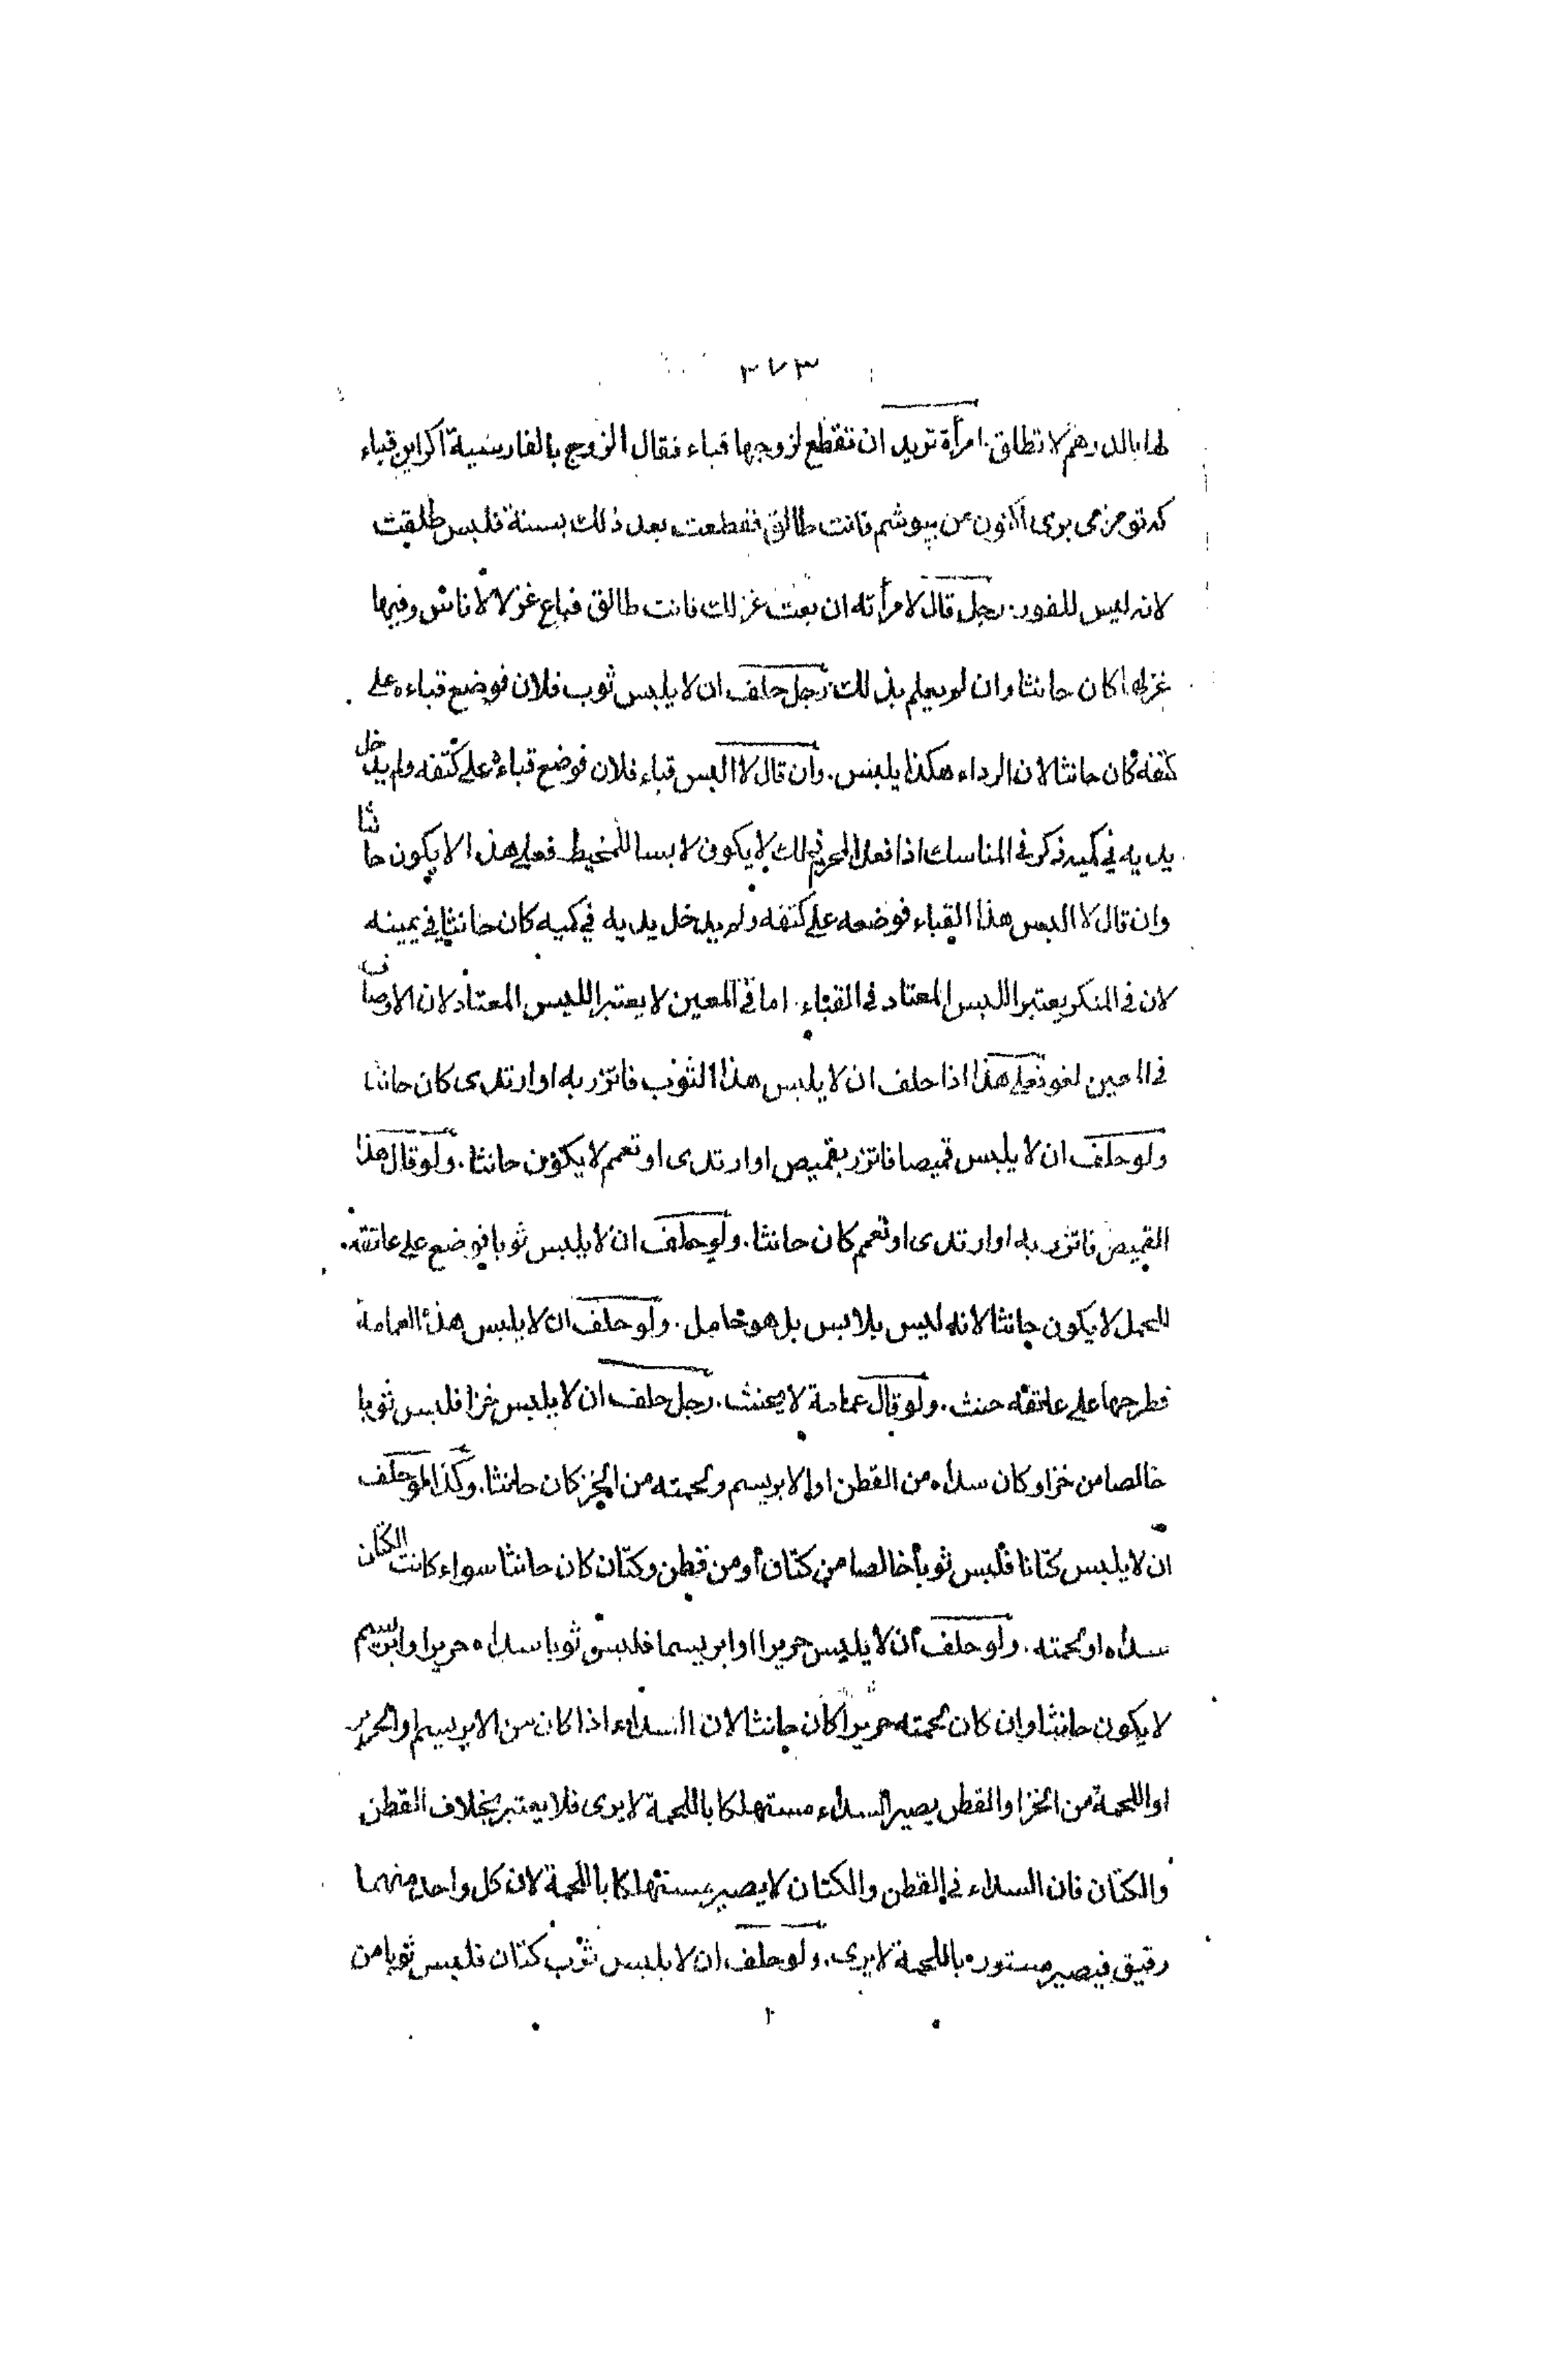 ٣٧٣
لها بالدرهم لا تطلق . امرأة تريد ان تقطع لزوجها قباء فقال الزوج بالفارسية اكر اين قباء
كه تو مي برى اكنون من بپوشم فانت طالق فقطعت بعد ذلك بسنة فلبس طلقت
لانه ليس للفور . رجل قال لامرأته ان بعت غزلك فانت طالق فباع غزلا لاناس وفيها
غزلها كان حانثا وان لم يعلم بذلك رجل حلف ان لا يلبس ثوب فلان فوضع قباءه على
كتفه كان حانثا لان الرداء هكذا يلبس . وان قال لا البس قباء فلان فوضع قباءه على كتفه ولم يدخل
يديه في كميه ذكر في المناسك اذا فعل المحرم ذلك لا يكون لابسا للمخيط فعلى هذا لا يكون حانثا
وان قال لا البس هذا القباء فوضعه على كتفه ولم يدخل يديه في كميه كان حانثا في يمينه
لان في المنكر يعتبر اللبس المعتاد في القباء . اما في المعين لا يعتبر اللبس المعتاد لان الاوصاف
في المعين لغو فعلى هذا اذا حلف ان لا يلبس هذا الثوب فاتزر به او ارتدى كان حانثا
ولو حلف ان لا يلبس قميصا فاتزر بقميص او ارتدى او تعمم لا يكون حانثا . ولو قال هذا
القميص فاتزر به او ارتدى او تعمم كان حانثا . ولو حلف ان لا يلبس ثوبا فوضع على عاتقه .
للحمل لا يكون حانثا لانه ليس بلابس بل هو حامل . ولو حلف ان لا يلبس هذه العمامة
فطرحها على عاتقه حنث . ولو قال عمامة لا يحنث . رجل حلف ان لا يلبس خزا فلبس ثوبا
خالصا من خز او كان سداه من القطن او الابريسم ولحمته من الخز كان حانثا . وكذا لو حلف
ان لا يلبس كتانا فلبس ثوبا خالصا من كتان أو من قطن وكتان كان حانثا سواء كانت الكتان
سداه او لحمته . ولو حلف أن لا يلبس حريرا او ابريسما فلبس ثوبا سداه حريرا وابريسم
لا يكون حانثا وان كان لحمته حريرا كان حانثا لان السداء اذا كان من الابريسم او الحرير
او اللحمة من الخز او القطن يصير السداء مستهلكا باللحمة لا يرى فلا يعتبر بخلاف القطن
والكتان فان السداء في القطن والكتان لا يصير مستهلكا باللحمة لان كل واحد منهما
رقيق فيصير مستوره باللحمة لا يرى . ولو حلف ان لا يلبس ثوب كتان فلبس ثوبا من